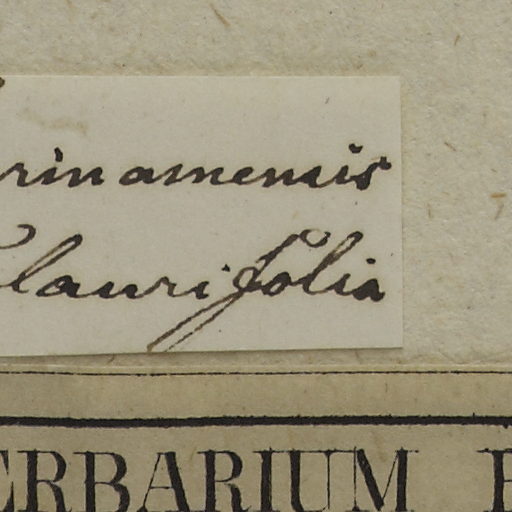 rinamensis
laurifolia
ERBARIUM